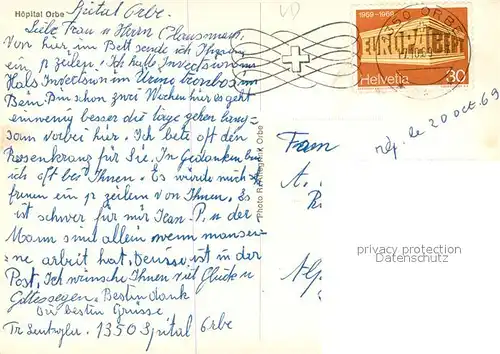 Hôpital Orbe
Spital Orbe.
Liebe Frau u Herrn
Von hier im Bett sende ich Ihnen
ein p zeilen. Ich habe Invectsion im
Hals Invectsion im Urine trombos im
Bein. Bin schon zwei Wochen hier es geht
ein wenig besser die tage gehen lang
sam vorbei hier. Ich bete oft den
Rosenkranz für Sie. In Gedanken bin
ich oft bei Ihnen. Es würde mich
freuen ein p zeilen von Ihnen. Es
ist schwer für mir Jean. P. u der
Mann sind allein wenn man seine
ne arbeit hat, Denise ist in der
Post, Ich wünsche Ihnen viel Glück u
Gottessegen. Besten dank
Die besten Grüsse
1350 Spital Orbe
Orbe
1350 ORBE
1959-1969
EUROPA CEPT
Helvetia 30
rép. le 20 oct. 69
Fam
A.
privacy protection
DATENSCHUTZ